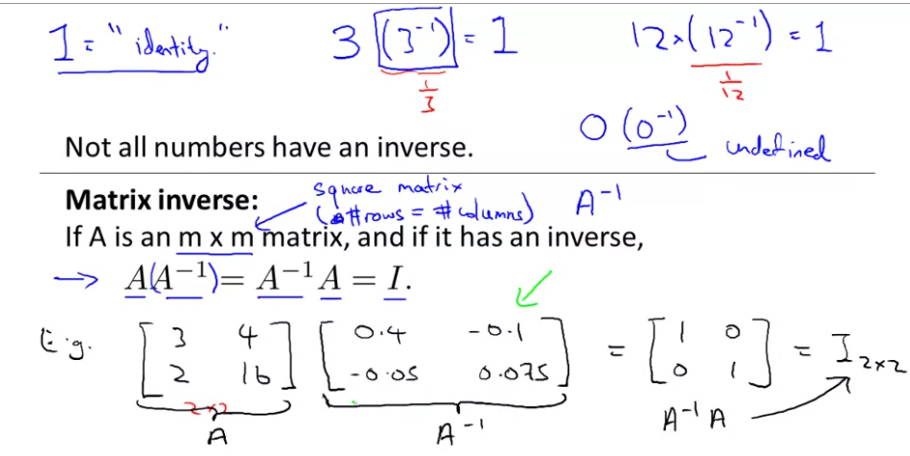 1 = "identity." 3 (3⁻¹) = 1 12×(12⁻¹) = 1
1/3 1/12
0 (0⁻¹)
Not all numbers have an inverse. undefined
Matrix inverse: square matrix
(#rows = #columns) A⁻¹
If A is an m x m matrix, and if it has an inverse,
→ A(A⁻¹) = A⁻¹ A = I.
E.g. [3 4; 2 16] [0.4 -0.1; -0.05 0.075] = [1 0; 0 1] = I 2×2
2×2
A A⁻¹ A⁻¹ A